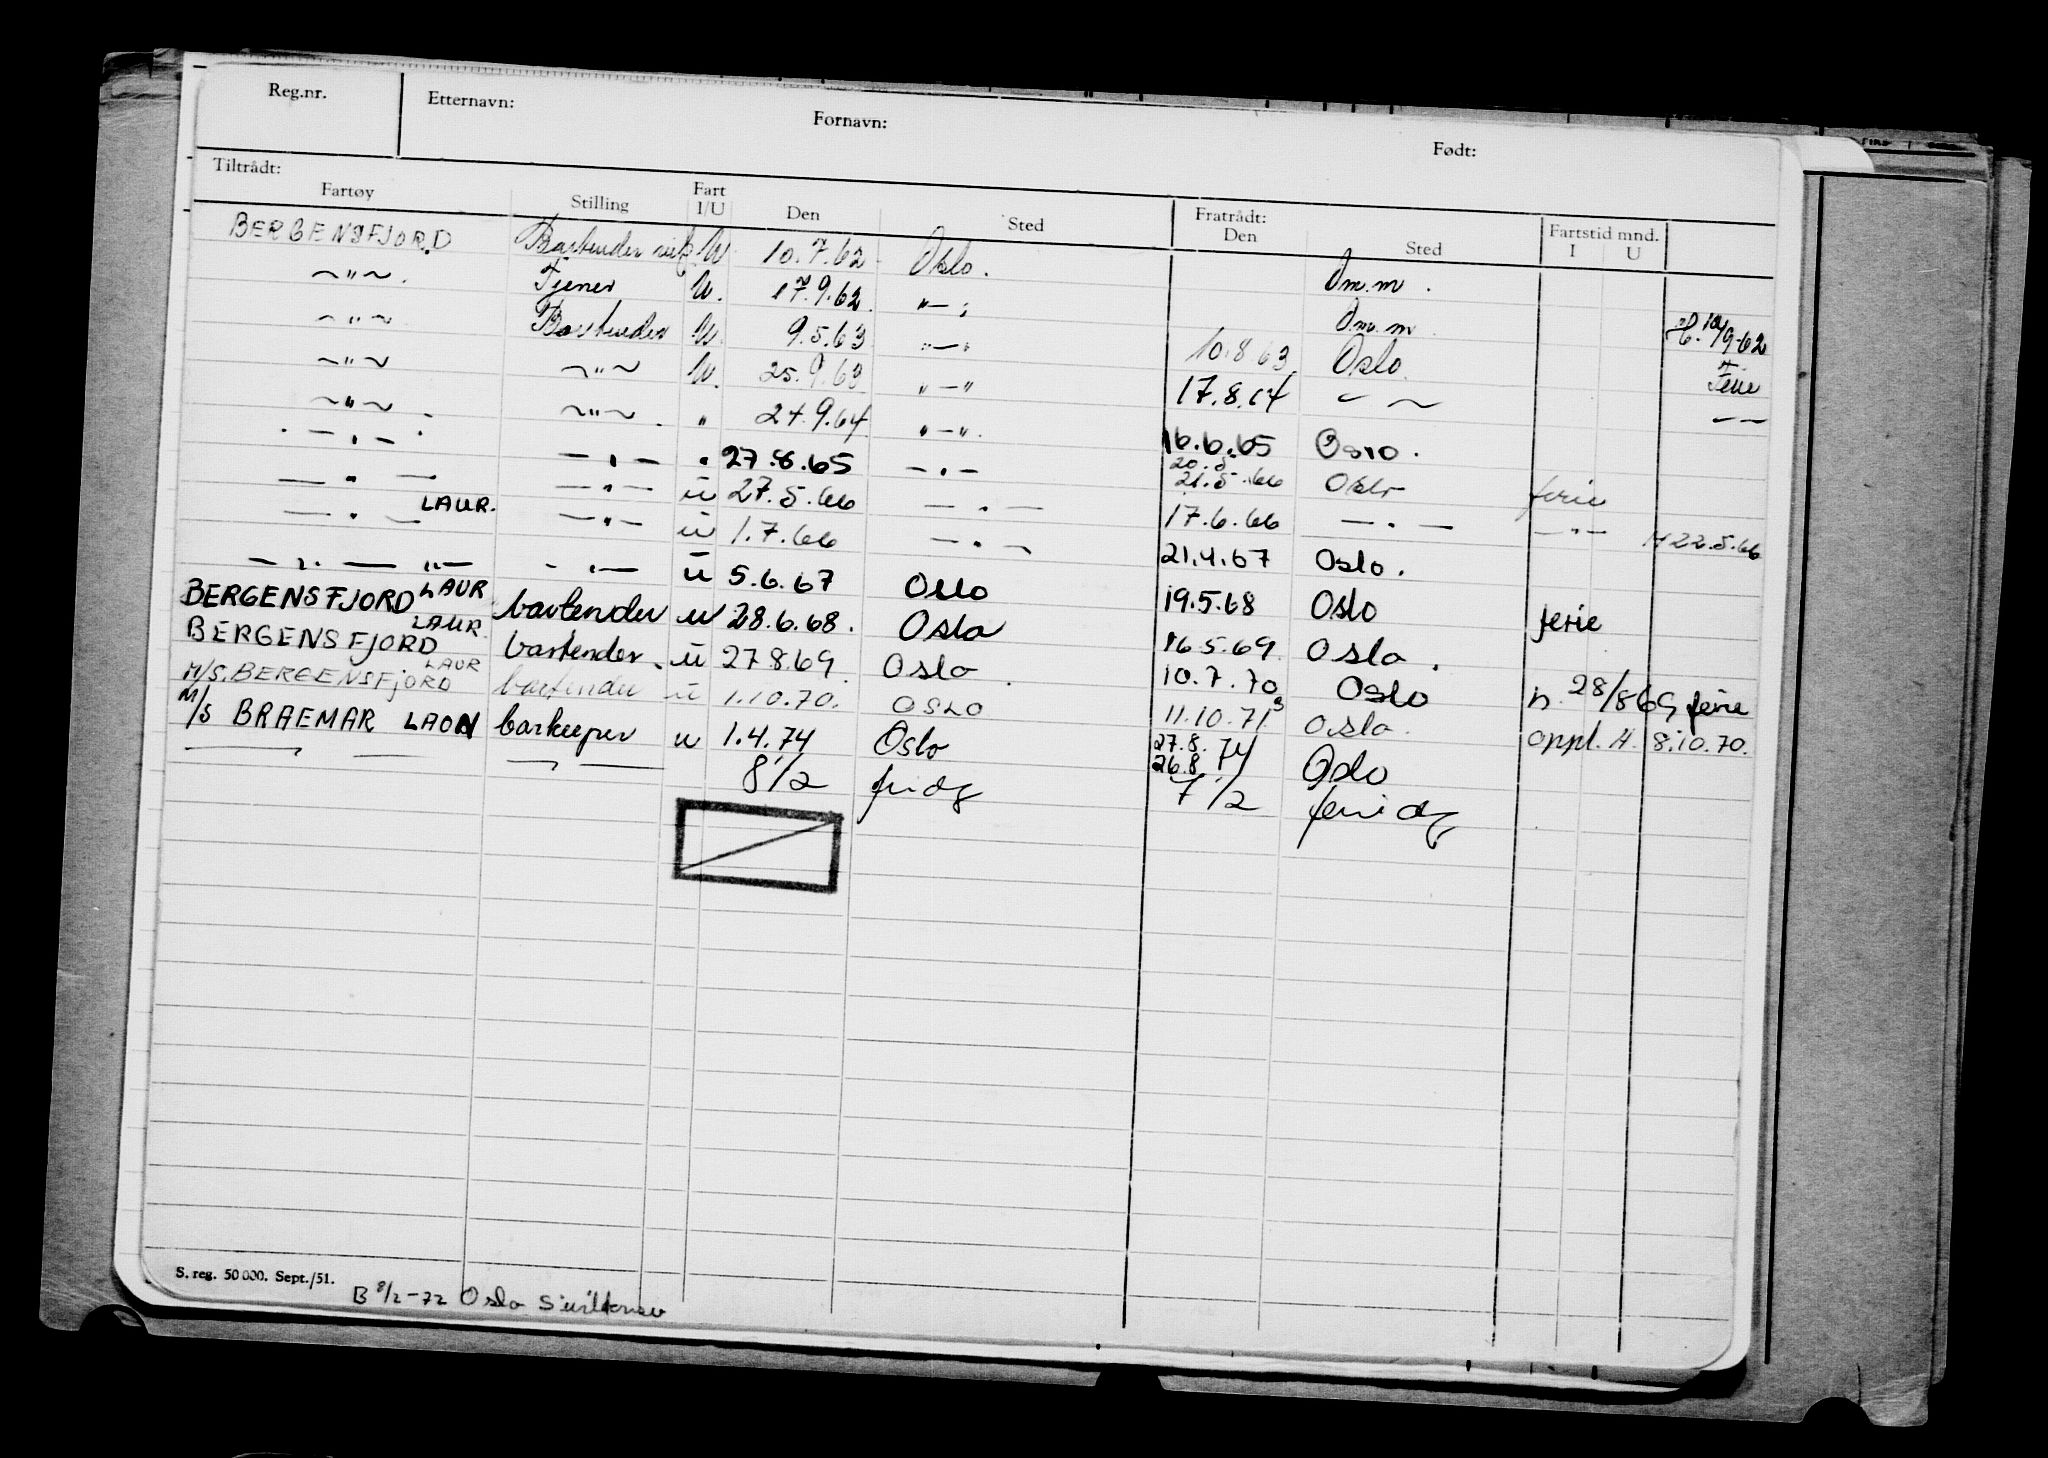 Reg.nr. Etternavn: Fornavn: Født:
Tiltrådt: Fratrådt: Fartstid mnd.
Fartøy Stilling Fart I/U Den Sted Den Sted I U
BERGENSFJORD Bartender U 10.7.62 Oslo. Om.m.
~"~. Tjener U. 17.9.62. "—" Om.m. 10/9-62
~"~ Bartender U. 9.5.63 "—" 10.8.63 Oslo. Ferie
~"~ ~"~ U. 25.9.63 "—" 17.8.64 ~ ~ — —
~"~. ~"~. " 24.9.64. "—". 16.6.65 Oslo.
— " — — " — " 27.8.65 — " — 20.5. 21.5.66 Oslo ferie
— " — — " — u 27.5.66 — " — 17.6.66 — " — — " — H 22.5.66
— " — LAUR. — " — u 1.7.66 — " — 21.4.67 Oslo.
— " — " — — " — u 5.6.67 Oslo 19.5.68 Oslo ferie
BERGENSFJORD LAUR bartender u 28.6.68. Oslo 16.5.69. Oslo.
BERGENSFJORD LAUR. bartender u 27.8.69. Oslo. 10.7.70 Oslo n. 28/8 69 ferie
M/S. BERGENSFJORD LAUR bartender u 1.10.70. OSLO 11.10.71 Oslo. oppl. H. 8.10.70.
M/S BRAEMAR LAON barkeeper u 1.4.74 Oslo 27.8. 26.8. 74 Oslo
8/2 7/2
S. reg. 50 000. Sept./51.
B 8/2-72 Oslo